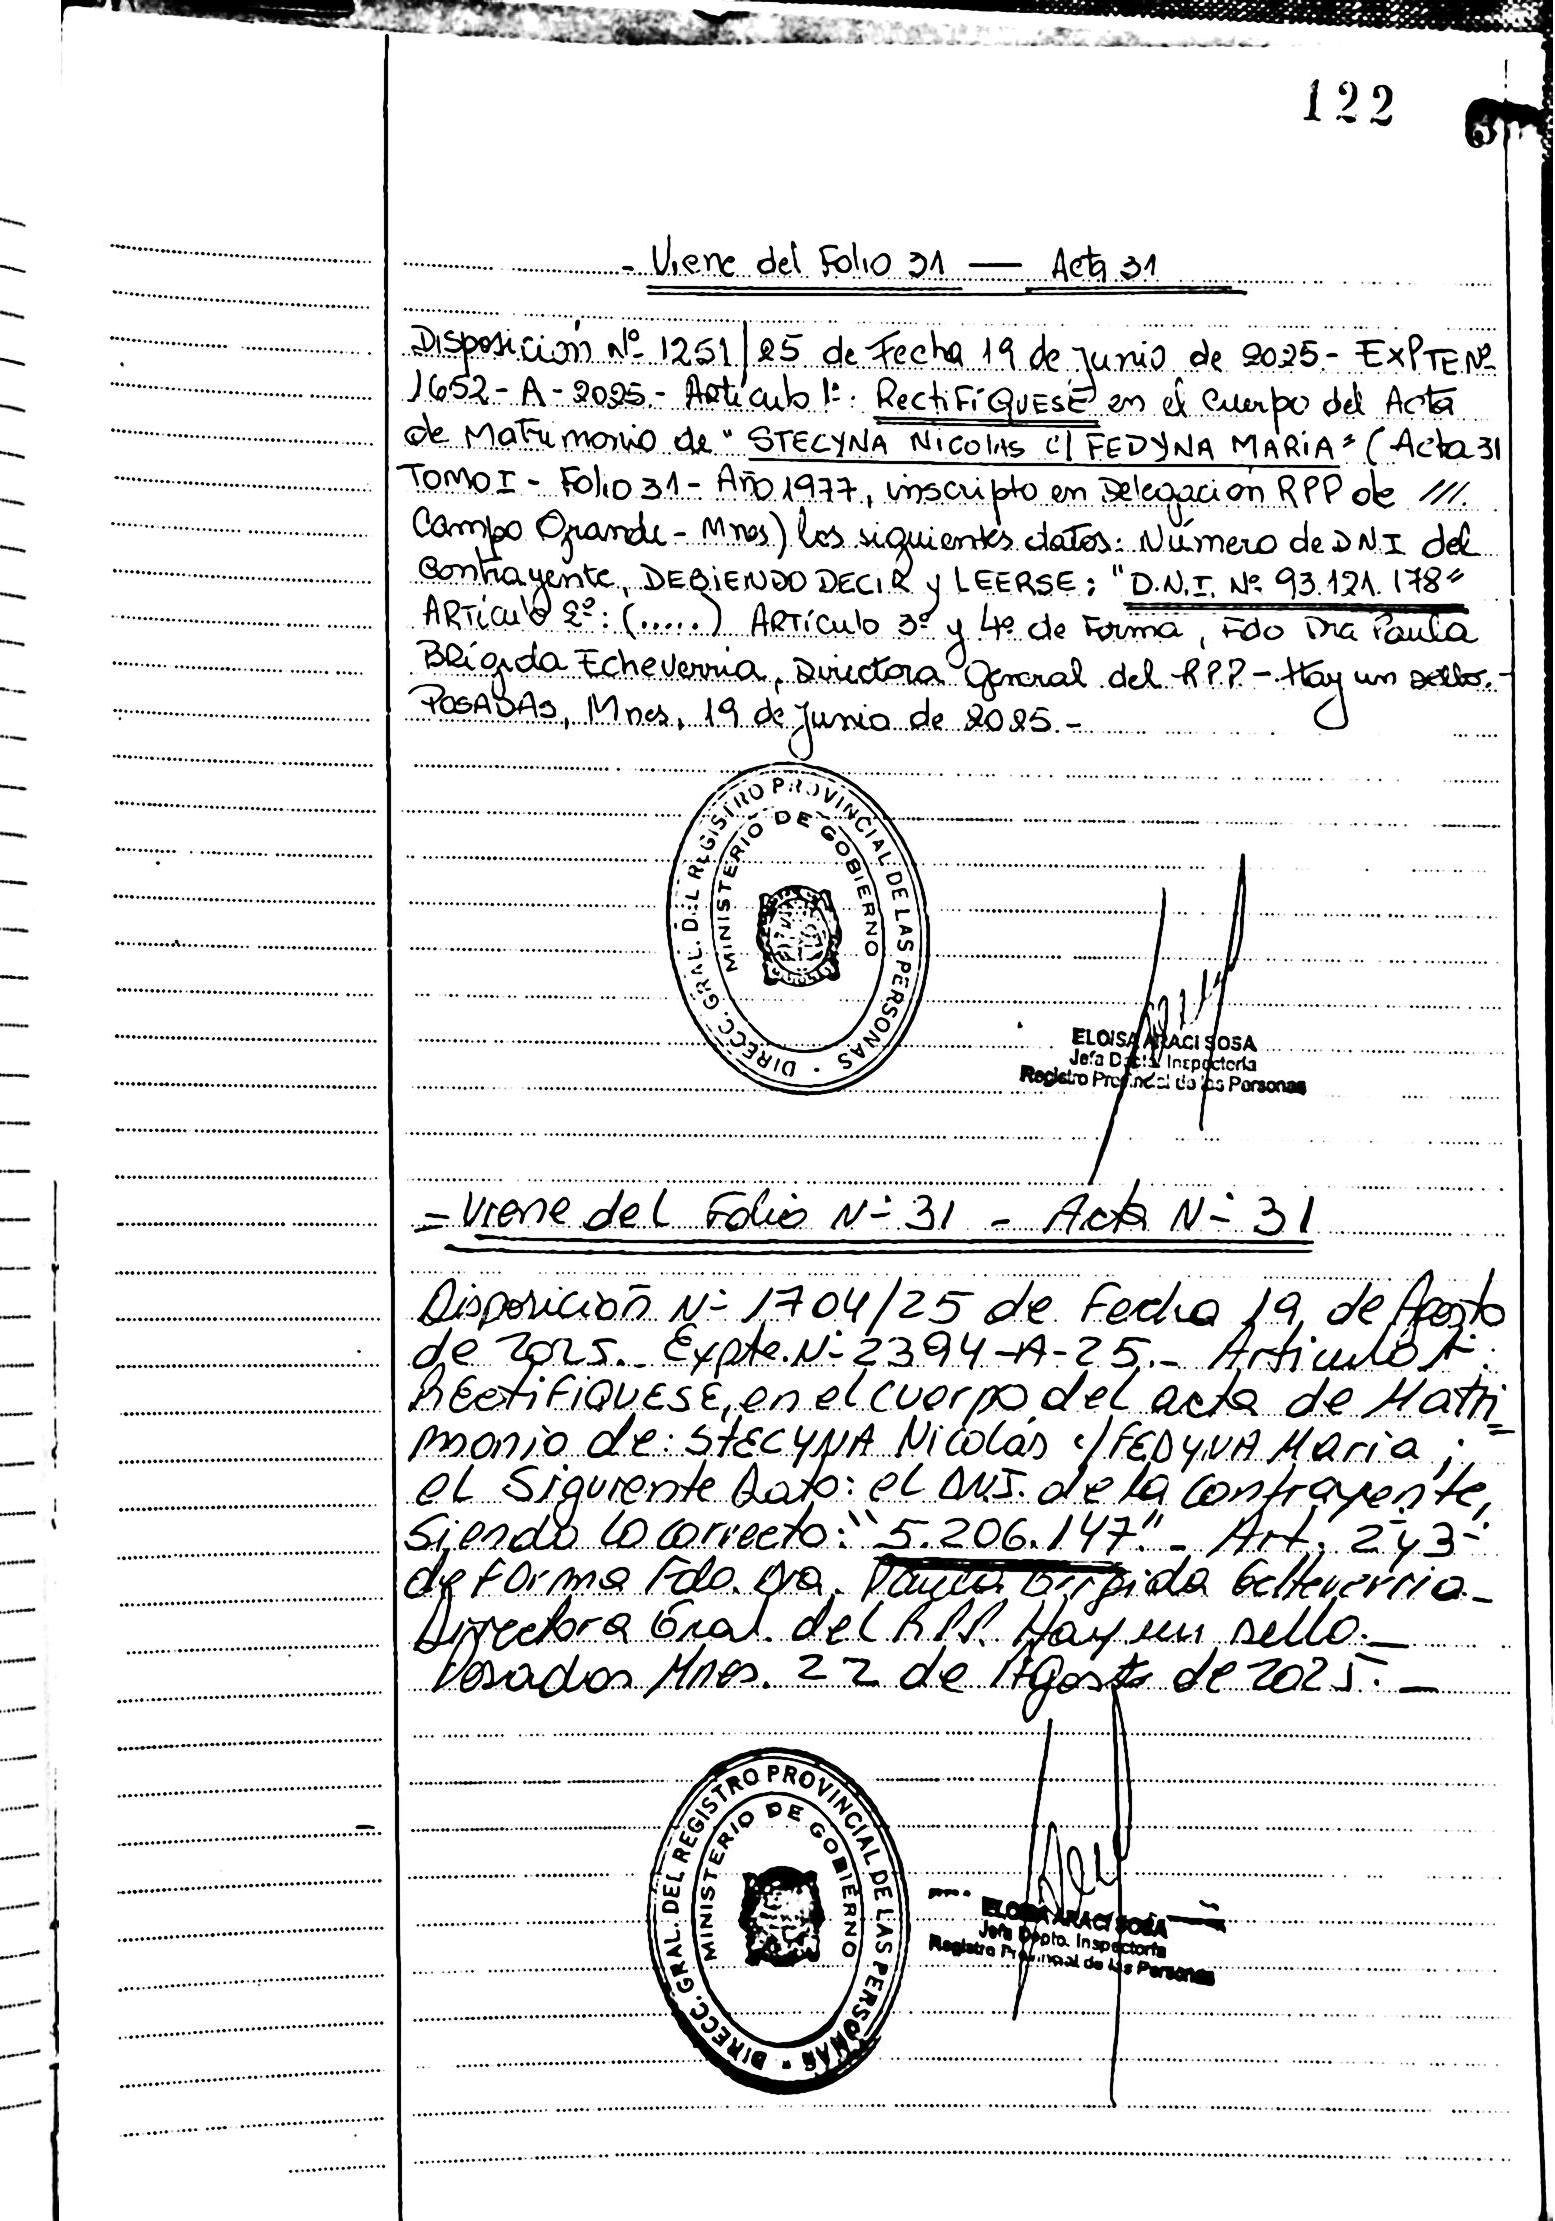 122
- Viene del Folio 31 — Acta 31
Disposición Nº 1251/25 de Fecha 19 de Junio de 2025.- EXPTE Nº
1652-A-2025.- Artículo 1º: RectiFÍQUESE en el cuerpo del Acta
de Matrimonio de "STECYNA Nicolás c/ FEDYNA MARÍA" (Acta 31
TOMO I - Folio 31 - Año 1977, inscripto en Delegación RPP de ///.
Campo Grande - Mnes) los siguientes datos: Número de DNI del
Contrayente, DEBIENDO DECIR y LEERSE: "D.N.I. Nº 93.121.178"
ARTÍCULO 2º: (.....) ARTÍCULO 3º y 4º de Forma, Fdo Dra Paula
Brígida Echeverria, Directora General del RPP - Hay un sello.-
POSADAS, Mnes, 19 de Junio de 2025.-
DIRECC. GRAL. DEL REGISTRO PROVINCIAL DE LAS PERSONAS
MINISTERIO DE GOBIERNO
ELOISA ARACI SOSA
Jefa Dpto. Inspectoría
Registro Provincial de las Personas
= Viene del Folio Nº 31 - Acta Nº 31
Disposición Nº 1704/25 de Fecha 19 de Agosto
de 2025.- Expte. Nº 2394-A-25.- Artículo 1º:
RECTIFIQUESE, en el cuerpo del acta de Matri=
monio de: STECYNA Nicolás c/ FEDYNA María;
el Siguiente Dato: el D.N.I. de la contrayente,
Siendo lo correcto: "5.206.147".- Art. 2º y 3º
de forma Fdo. Dra. Paula Brígida Echeverria.-
Directora Gral. del R.P.P. Hay un sello.-
Posadas Mnes. 22 de Agosto de 2025.-
DIRECC. GRAL. DEL REGISTRO PROVINCIAL DE LAS PERSONAS
MINISTERIO DE GOBIERNO
ELOISA ARACI SOSA
Jefa Dpto. Inspectoría
Registro Provincial de las Personas